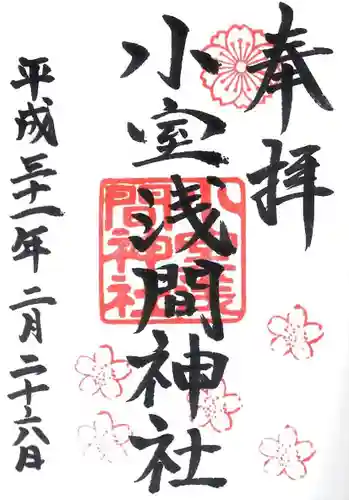 奉拝
小室浅間神社
平成三十一年二月二十六日
小室浅
間神社